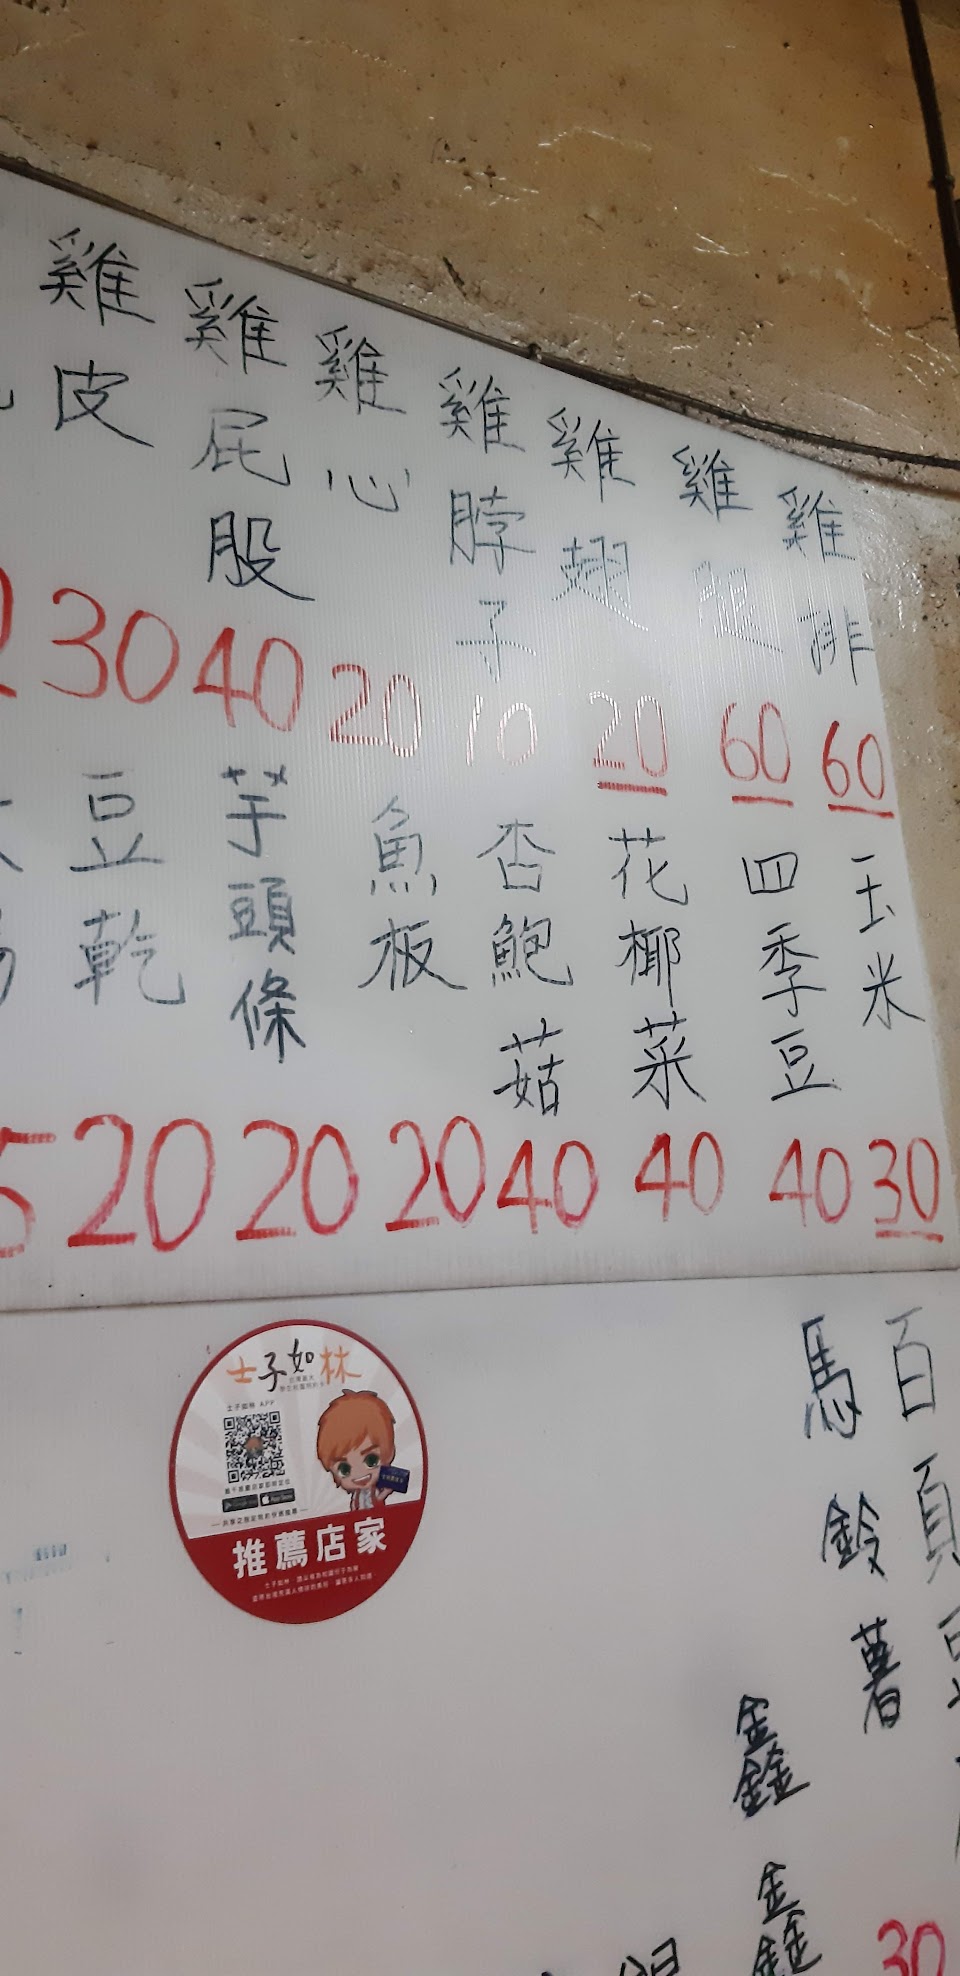 雞排
60
雞腿
60
雞翅
20
雞脖子
10
雞心
20
雞屁股
40
雞皮
30
玉米
30
四季豆
40
花椰菜
40
杏鮑菇
40
魚板
20
芋頭條
20
豆乾
20
百頁
馬鈴薯
30
鑫鑫
士子如林
士子如林 APP
推薦店家